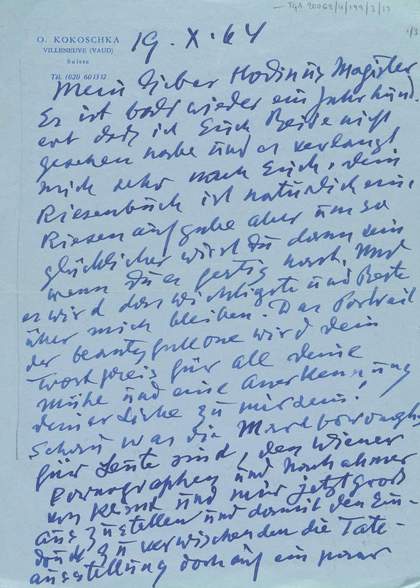 TGA 20062/4/199/3/13
1/3
O. KOKOSCHKA
VILLENEUVE (VAUD)
Suisse
Tél. (020) 60 13 12
19. X. 64
Mein lieber Hodin, Magister
Es ist bald wieder ein Jahrhund
ert daß ich Euch Beide nicht
gesehen habe und es verlangt
mich sehr nach Euch. Dein
Riesenbuch ist natürlich eine
Riesenaufgabe aber um so
glücklicher wirst Du dann sein
wenn Du es fertig hast. Und
es wird das wichtigste und Beste
über mich bleiben. Das Portrait
der beautyfull one wird dein
Trostpreis für all deine
Mühe und eine Anerkennung
deiner Liebe zu mir sein!
Schau was die Marlborough
für Leute sind, den Wiener
Pornographen und Nachahmer
von Klimt und mir jetzt grad
auszustellen und damit den Ein-
druck zu verwischen den die Tate-
ausstellung doch auf ein paar